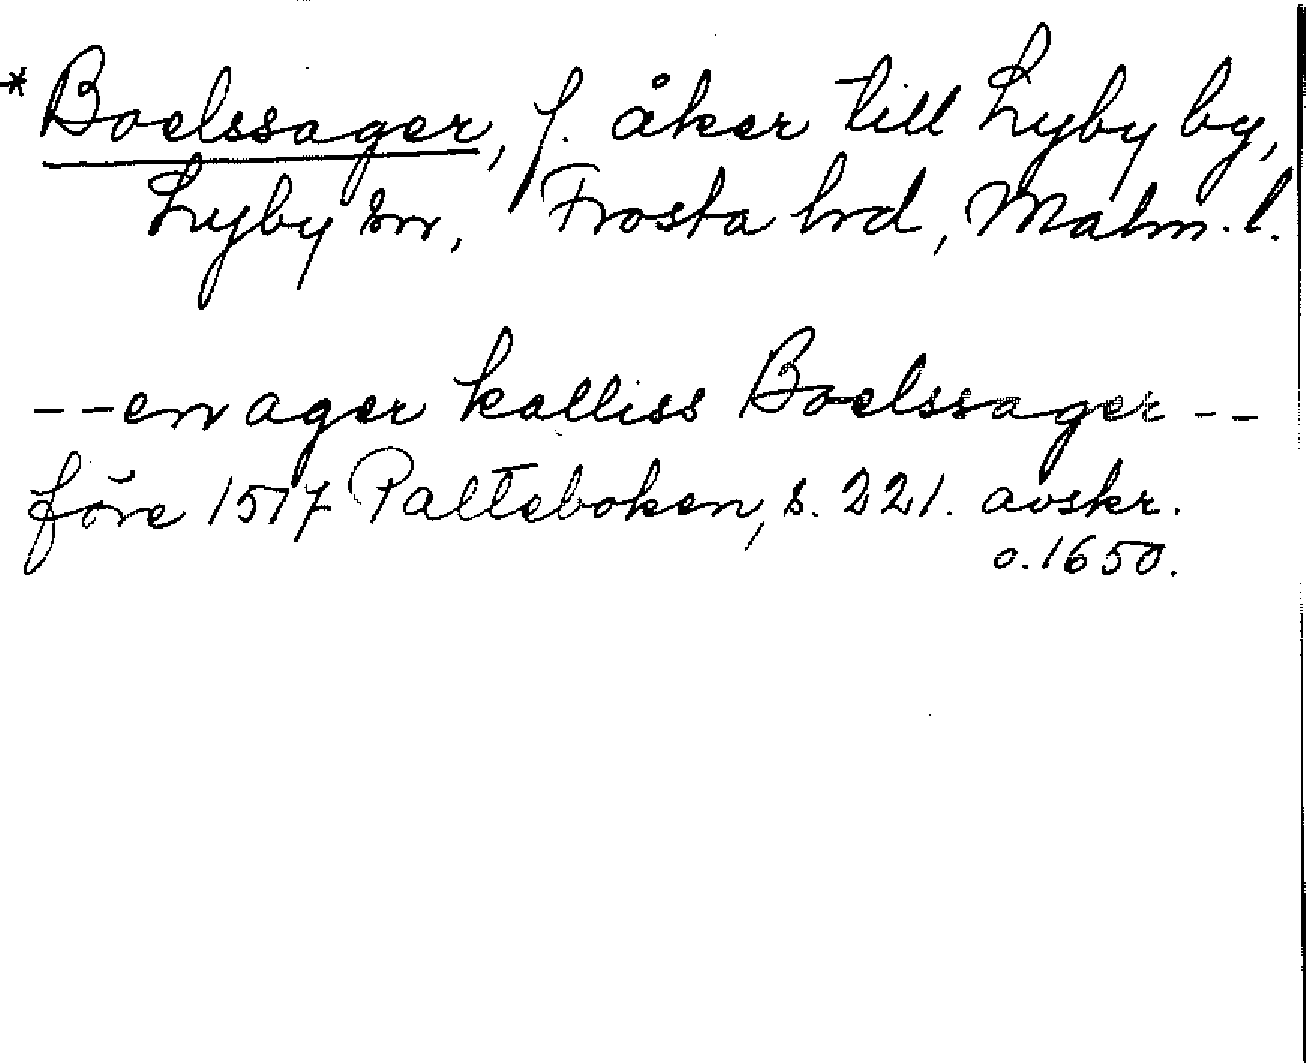 * Boelssager, f. åker till Lyby by,
Lyby sn, Frosta hd, Malm. l.
-- en ager kalliss Boelssager --
före 1517 Palteboken, s. 221. avskr.
o. 1650.